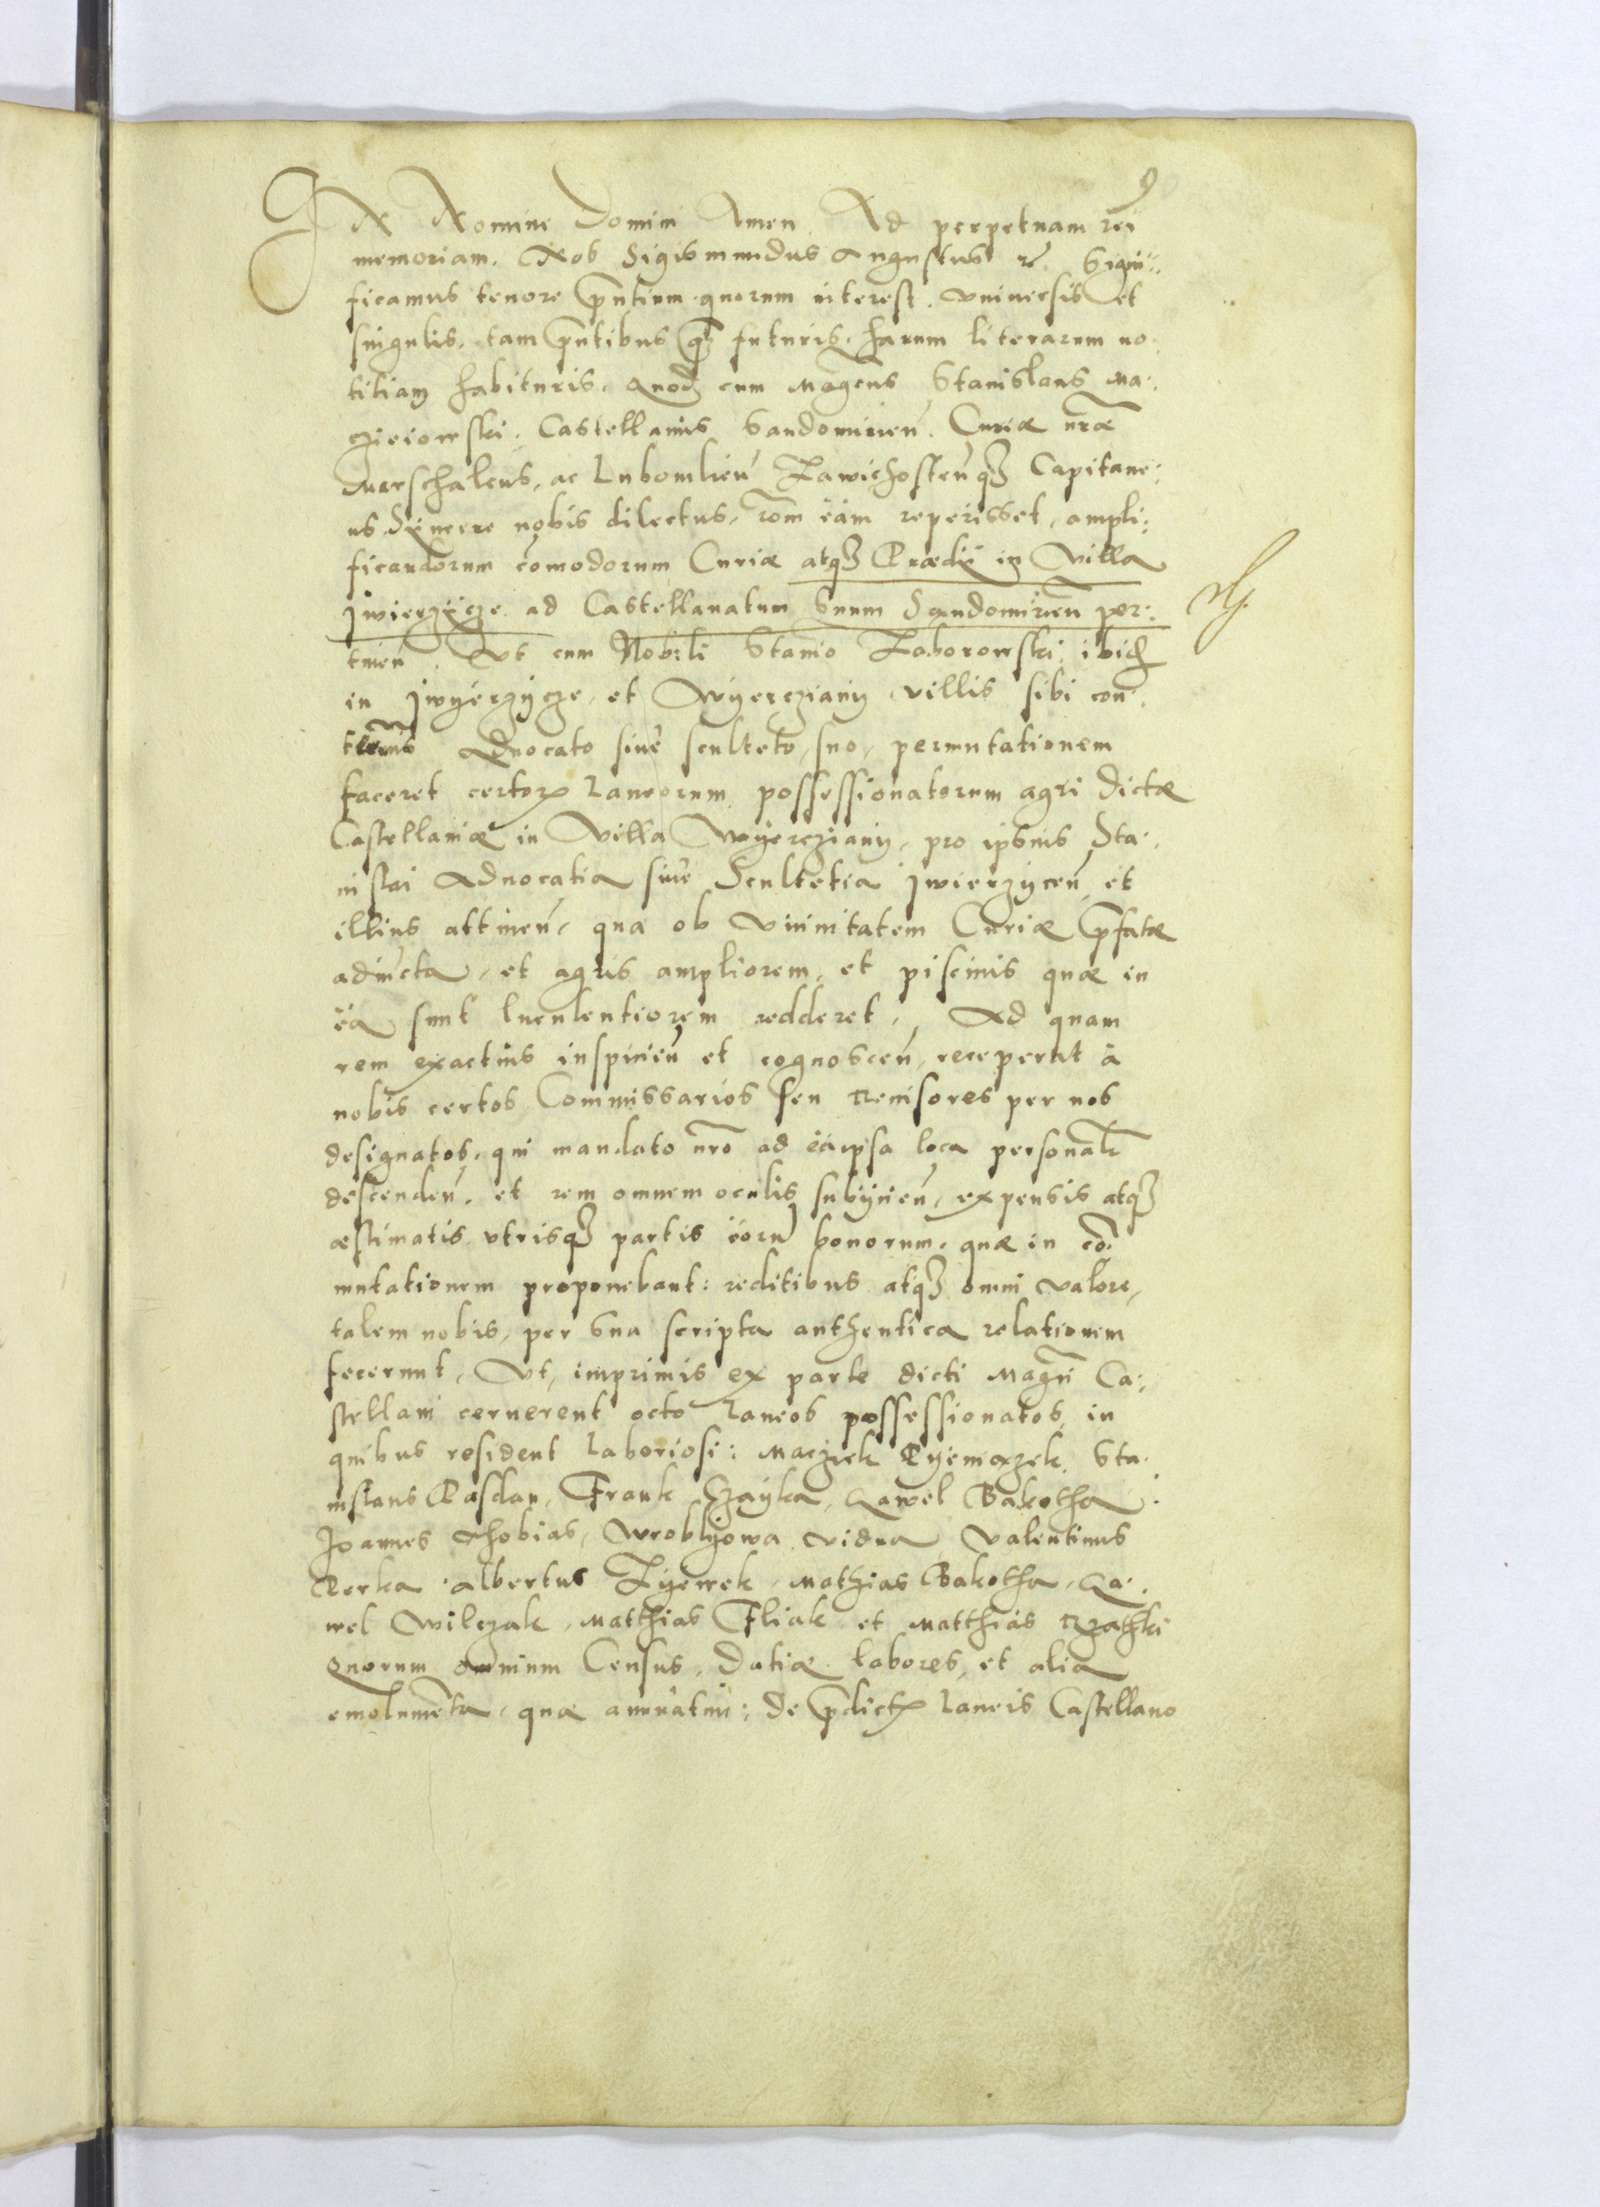 9
IN Nomine Domini Amen. Ad perpetuam rei
memoriam. Nos Sigismundus Augustus rc. Signi-
ficamus tenore pntium quorum interest. vniuersis et
singulis, tam pntibus q3 futuris, harum literarum no:
titiam habituris. Quod cum Magcus Stanislaus Ma:
czieiowski. Castellanus Sandomirien. Curiæ nræ
Marschalcus, ac Lubomlien Zawichostenq3 Capitane:
us Syncere nobis dilectus, rom eam reperisset, ampli:
ficandorum comodorum Curiæ atq3 Prædij in Villa
Jwierzycze ad Castellanatum suum Sandomirien per:
tinen. Vt cum Nobili Stanio Zaborowski ibid
in Jwyerzycze, et Wyercziany villis sibi con:
Aduocato siue sculteto suo, permutationem
faceret certorz Laneorum possessionatorum agri dictæ
Castellaniæ in Villa Wyercziany, pro ipsius Sta:
nislai Aduocatia siue Scultetia Jwierzycen et
illius attinen, qua ob vicinitatem Curiæ pfatæ
adiuncta, et agris ampliorem, et piscinis quæ in
ea sunt luculentiorem redderet. Ad quam
rem exactius inspicien et cognoscen, receperat à
nobis certos Commissarios seu Reuisores per nos
designatos, qui mandato nro ad eaipsa loca personalr
descenden. et rem omnem oculis subijcien, expensis atq3
æstimatis vtrisq3 partis eoru bonorum, quæ in co:
mutationem proponebant: reditibus atq3 omni valore,
talem nobis, per sua scripta authentica relationem
fecerunt, Vt, imprimis ex parte dicti Magci Ca:
stellani cernerent octo Laneos possessionatos, in
quibus resident Laboriosi: Maczek Pyemazek. Sta:
nislaus Pasdan, Frank Czayka, Pawel Bakotha.
Joannes Chobias, Wroblyowa vidua Valentinus
Perka Albertus Zyewek, Mathias Bakotha, Pa:
wel Wilczak, Matthias Fliak et Matthias Rzathki
Quorum omnium Census, Datiæ labores, et alia
emolumenta, quæ annuatim: de pdictz Laneis Castellano